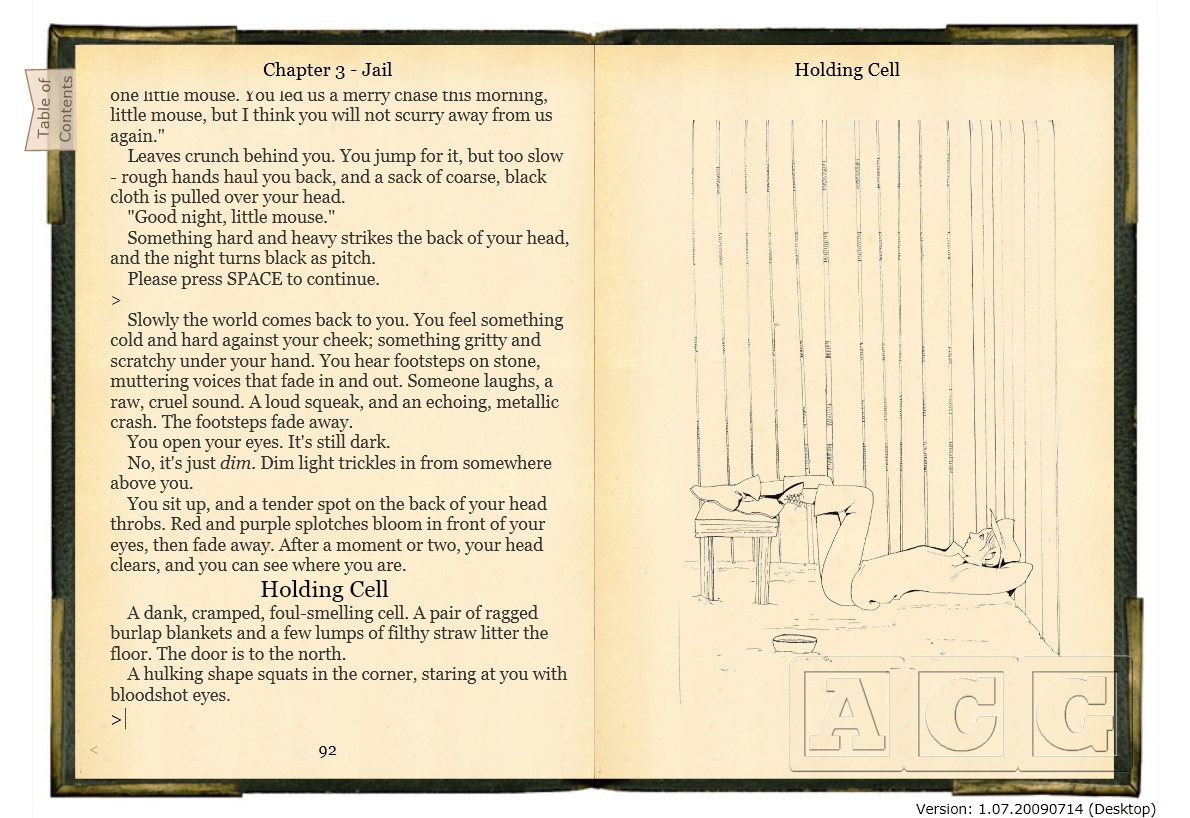 Table of
Contents
Chapter 3 - Jail
one little mouse. You led us a merry chase this morning,
little mouse, but I think you will not scurry away from us
again."
Leaves crunch behind you. You jump for it, but too slow
- rough hands haul you back, and a sack of coarse, black
cloth is pulled over your head.
"Good night, little mouse."
Something hard and heavy strikes the back of your head,
and the night turns black as pitch.
Please press SPACE to continue.
>
Slowly the world comes back to you. You feel something
cold and hard against your cheek; something gritty and
scratchy under your hand. You hear footsteps on stone,
muttering voices that fade in and out. Someone laughs, a
raw, cruel sound. A loud squeak, and an echoing, metallic
crash. The footsteps fade away.
You open your eyes. It's still dark.
No, it's just dim. Dim light trickles in from somewhere
above you.
You sit up, and a tender spot on the back of your head
throbs. Red and purple splotches bloom in front of your
eyes, then fade away. After a moment or two, your head
clears, and you can see where you are.
Holding Cell
A dank, cramped, foul-smelling cell. A pair of ragged
burlap blankets and a few lumps of filthy straw litter the
floor. The door is to the north.
A hulking shape squats in the corner, staring at you with
bloodshot eyes.
>
<
92
Holding Cell
ACG
Version: 1.07.20090714 (Desktop)